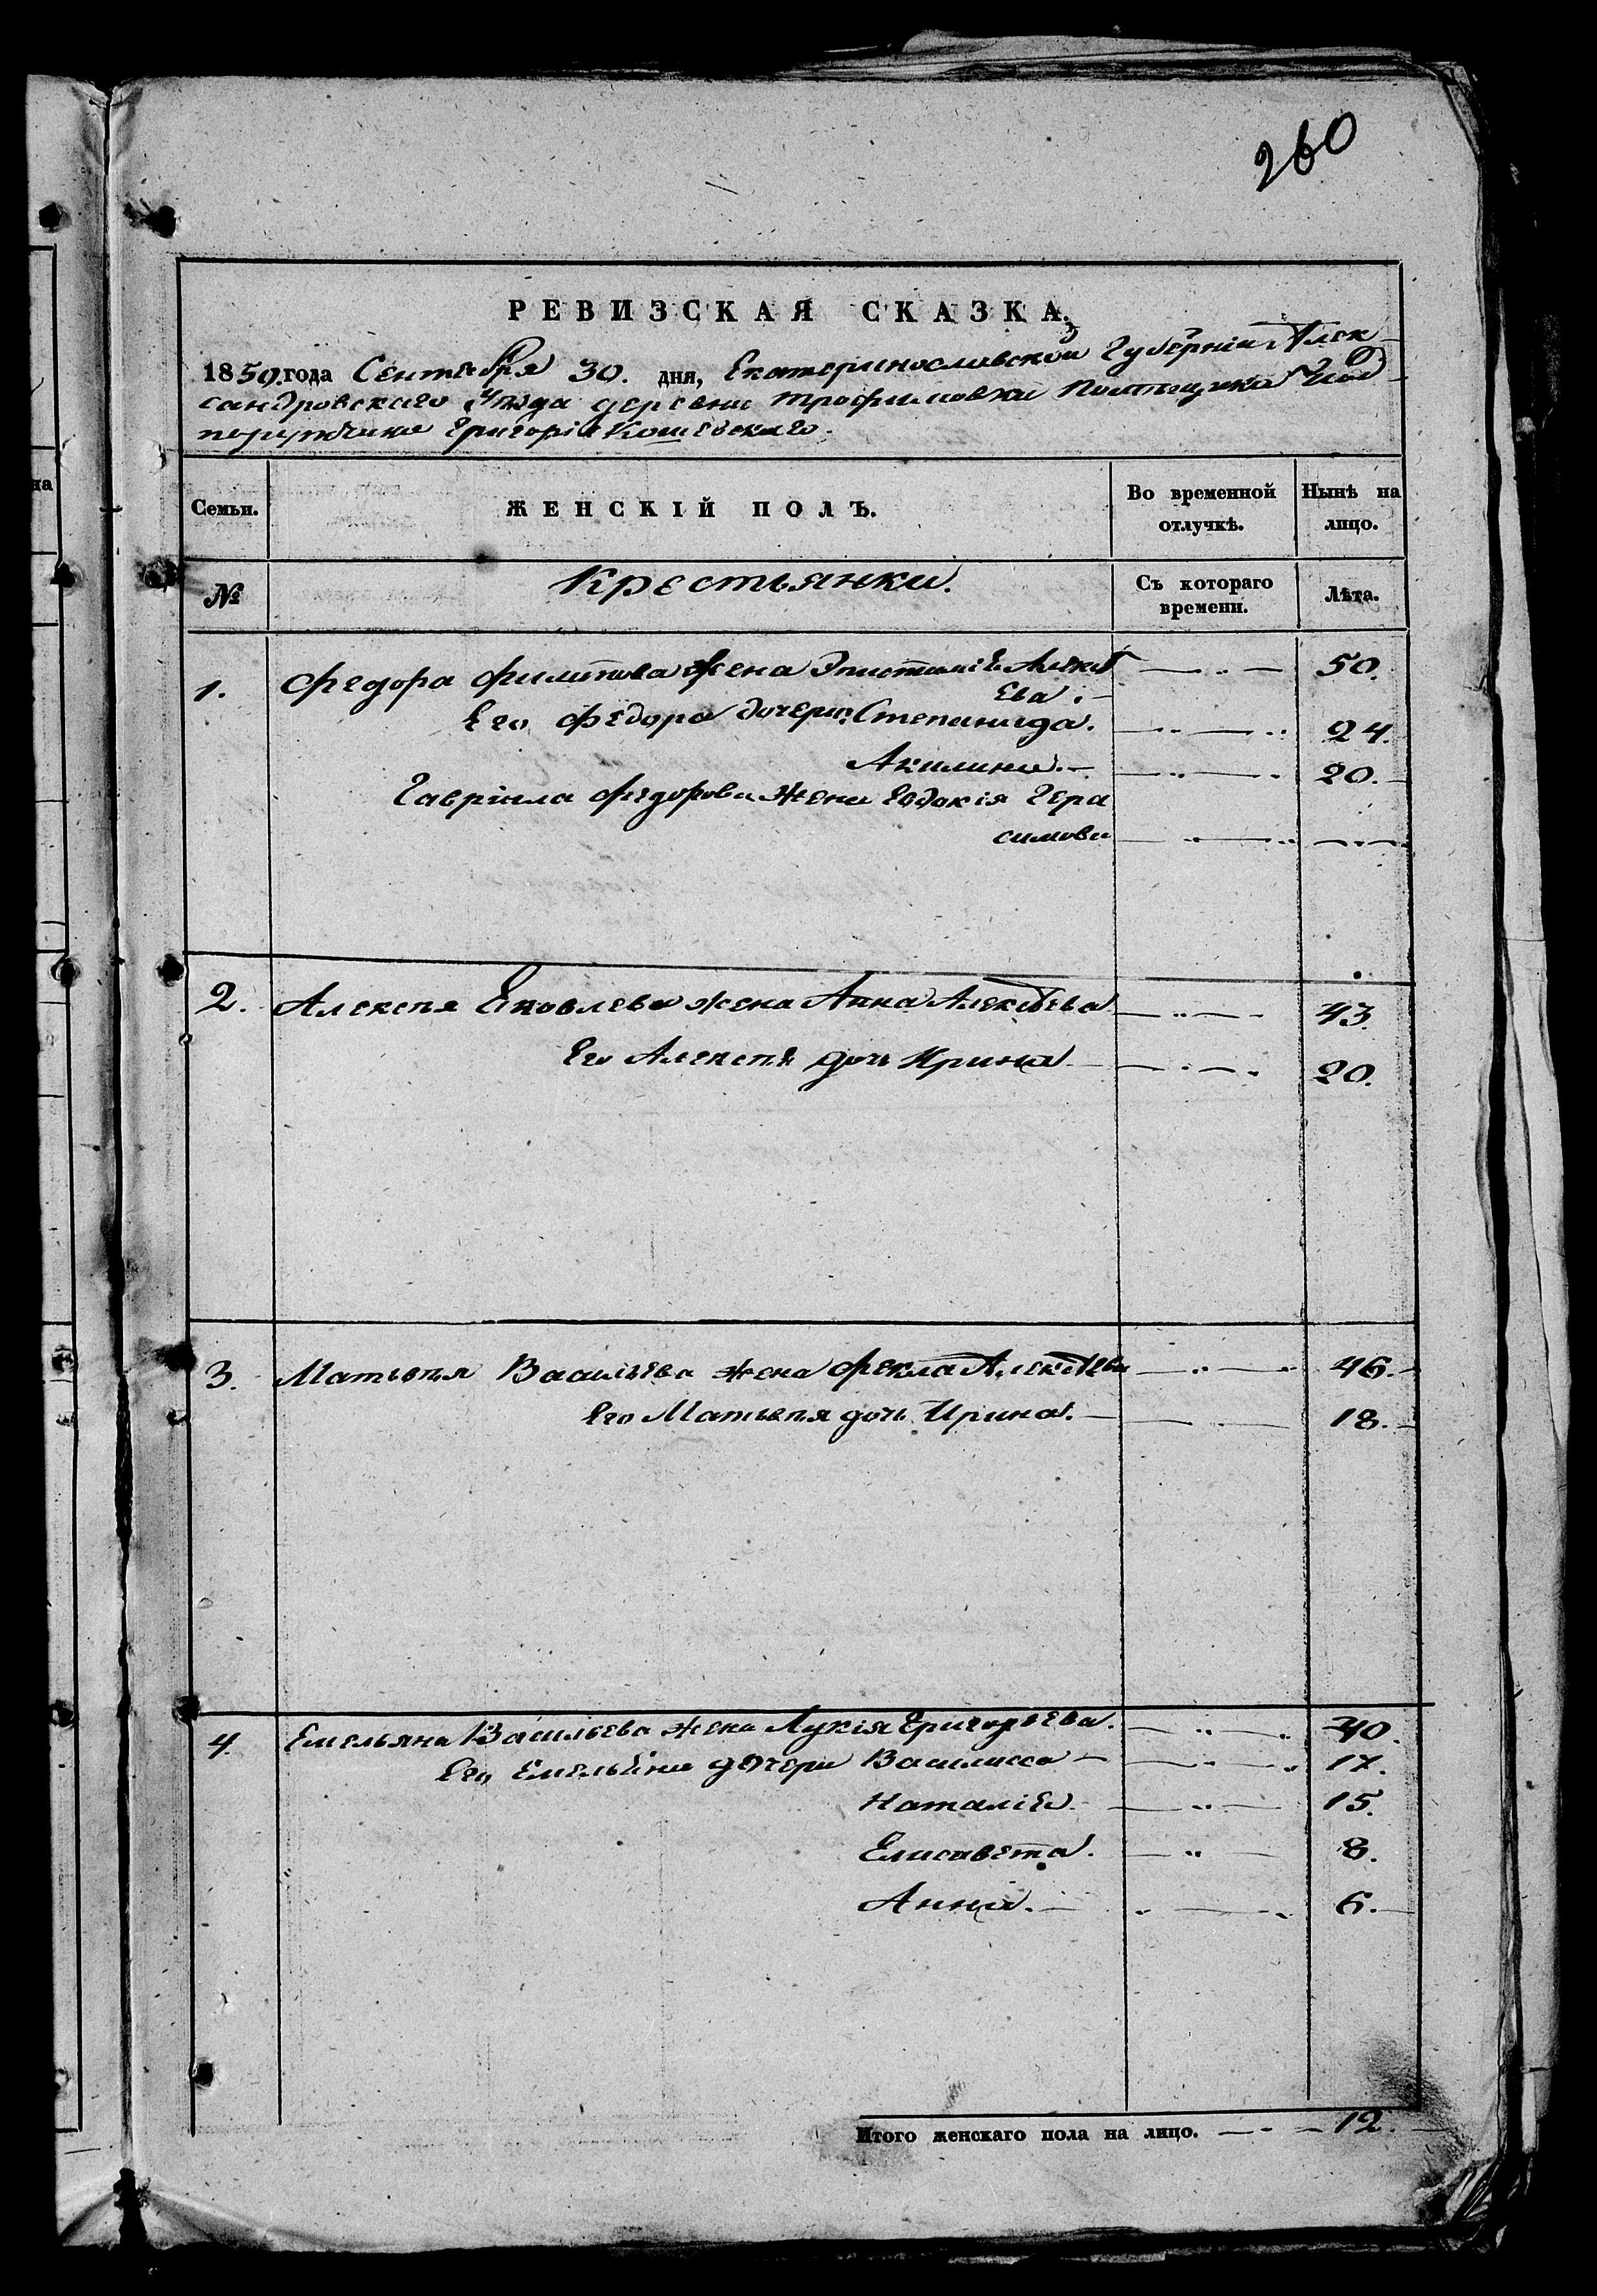 260
РЕВИЗСКАЯ СКАЗКА,
1850. года Сентября 30. дня, Екатеринославской Губерніи Алек-
сандровского Уѣзда деревни Трофимовки Помѣщика Под-
поручика Григорія Кошевскаго.
Семьи. ЖЕНСКІЙ ПОЛЪ. Во временной отлучкѣ. Нынѣ на лицо.
№ Крестьянки. Съ котораго времени. Лѣта.
1. Федора Филипова жена Эпистимія Алексѣ 50.
ева
Его Федора дочери: Степанида. 24.
Акилина. 20.
Гавріила Федорова жена Евдокія Гера
симова
2. Алексѣя Яковлева жена Анна Алексѣева 43.
Его Алексѣя дочь Ирина 20.
3. Матвѣя Васильева жена Фекла Алексѣева 46.
Его Матвѣя дочь Ирина. 18.
4. Емельяна Васильева жена Лукія Григорьева. 40.
Его Емельяна дочери Василисса 17.
Наталія 15.
Елисавета. 8.
Анна. 6.
Итого женскаго пола на лицо. 12.
на